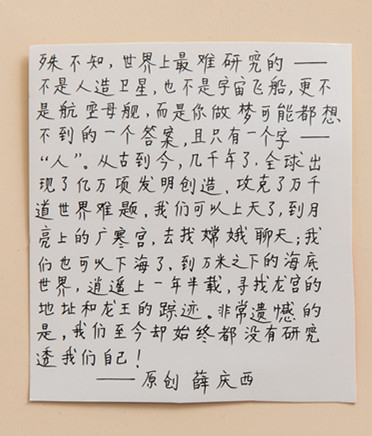 殊不知，世界上最难研究的——
不是人造卫星，也不是宇宙飞船，更不
是航空母舰，而是你做梦可能都想
不到的一个答案，且只有一个字——
“人”。从古到今，几千年了，全球出
现了亿万项发明创造、攻克了万千
道世界难题，我们可以上天了，到月
亮上的广寒宫，去找嫦娥聊天；我
们也可以下海了，到万米之下的海底
世界，逍遥上一年半载，寻找龙宫的
地址和龙王的踪迹。非常遗憾的
是，我们至今却始终都没有研究
透我们自己！
——原创 薛庆西